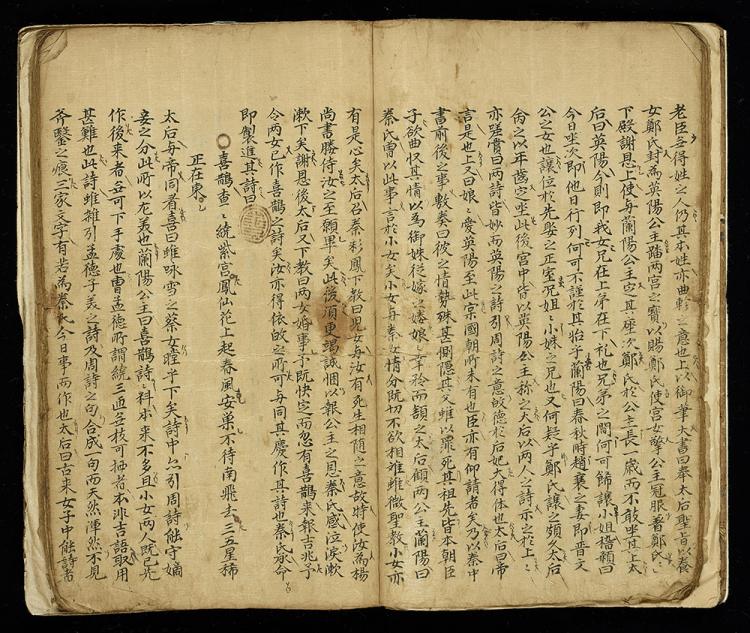 老臣無得姓之人仍其本姓亦曲軫之意也上以御筆大書曰奉太后聖旨以養
女鄭氏封爲英陽公主踏兩宮之寶以賜鄭氏使宮女擎公主冠服着鄭氏〻
下殿謝恩上使與蘭陽公主定其座次鄭氏於公主長一歲而不敢坐其上太
后曰英陽今則即我女兄在上弟在下礼也兄弟之間何可歸讓小姐稽顙曰
今日坐次即他日行列何可不謹於其始乎蘭陽曰春秋時趙衰之妻即晉文
公之女也讓位於先娶之正室況姐〻小妹之兄也又何疑乎鄭氏讓之頗久太后
命之以年齒定坐此後宮中皆以英陽公主称之太后以兩人之詩示之於上〻
亦嗟賞曰兩詩皆妙而英陽之詩引周詩之意歸德於后妃大得体也太后曰帝
言是也上又曰娘〻愛英陽至此宗國朝所未有也臣亦有仰請者矣乃以秦中
書前後之事敷奏曰彼之情勢殊甚惻隱其父雖以罪死其祖先皆本朝臣
子欲曲收其情以爲御妹從嫁之媵娘〻幸矜而頷之太后顧兩公主蘭陽曰
秦氏曾以此事言於小女矣小女與秦女情分既切不欲相離雖微聖教小女亦
有是心矣太后召秦彩鳳下教曰兒女與汝有死生相隨之意故特使汝爲楊
尚書媵侍汝之至願畢矣此後須更竭誠悃以報公主之恩秦氏感泣淚漱
漱下矣謝恩後太后又下教曰兩女婚事予既快定而忽有喜鵲來報吉兆予
令兩女已作喜鵲之詩矣汝亦得依歸之所可與同其慶作其詩也秦氏承命
即製進其詩曰
○喜鵲查〻繞紫宮鳳仙花上起春風安巢不待南飛去三五星稀
正在東
太后與帝同看喜曰雖咏雪之蔡女瞠乎下矣詩中亦引周詩能守嫡
妾之分此所以尤美也蘭陽公主曰喜鵲詩料本來不多且小女兩人既已先
作後來者無可下手處也曹孟德所謂繞三匝無枝可栖者本非吉語取用
甚難也此詩雖雜引孟德子美之詩及周詩之句合成一句而天然渾然不見
斧鑿之痕三家文字有若爲秦氏今日事而作也太后曰古來女子中能詩者